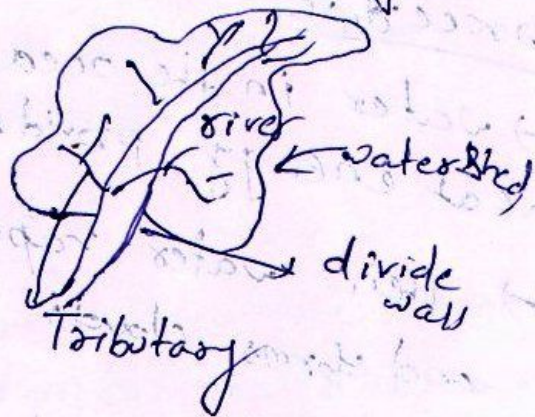 river
watershed
divide
wall
Tributary